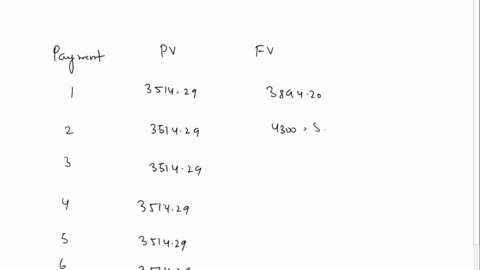 Payment PV FV
1 3514.29 3894.20
2 3514.29 4300.5.
3 3514.29
4 3514.29
5 3514.29
6 3514.29